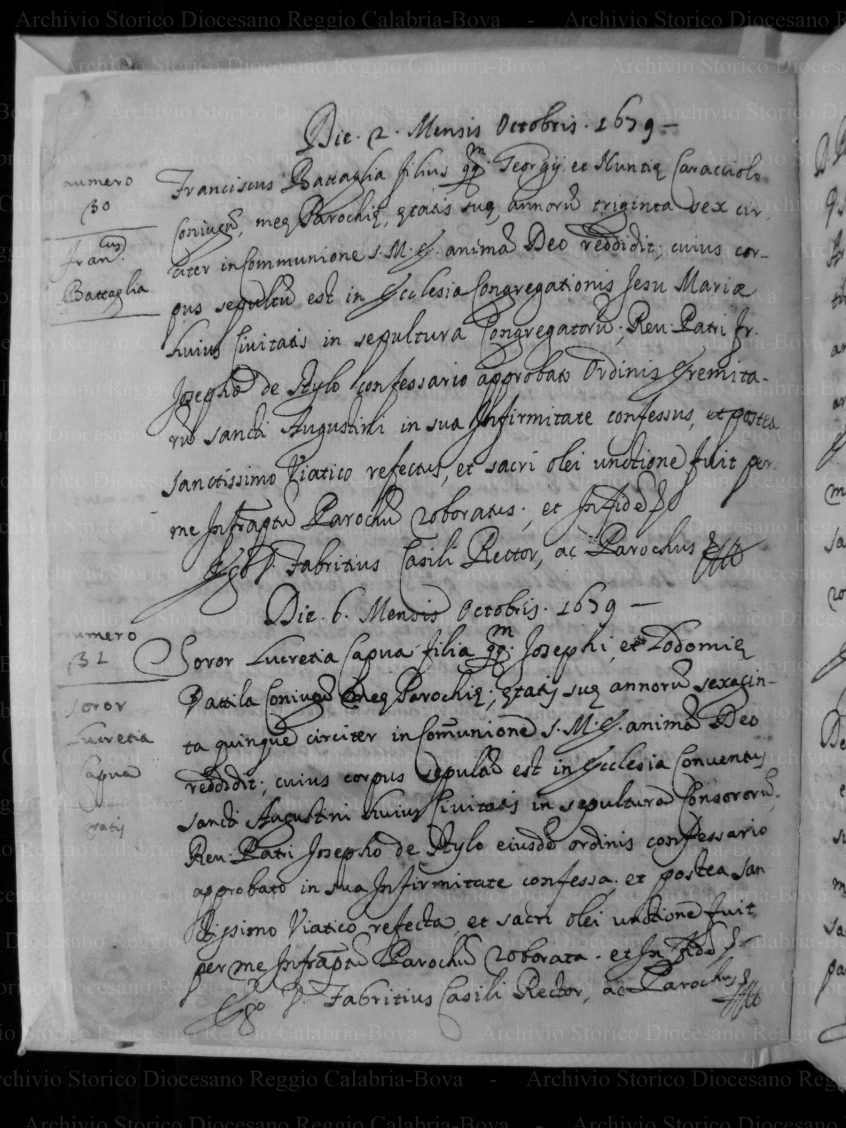 Die. 2. Mensis Octobris. 1679 –
numero
30
Fran.cus
Battaglia
Franciscus Battaglia filius qq.m Georgij et Nuntię Caracciolo
Coniugũ, meę Parochię, ętatis suę, annorũ triginta sex cir-
citer in Communione S. M. E. animã Deo reddidit; cuius cor-
pus sepultũ est in Ecclesia Congregationis Jesu Mariæ
huius Civitatis in sepultura Congregatorũ; Reu. Patri Fr.
Josepho de Stylo confessario approbato Ordinis Eremita-
rũ Sancti Augustini in sua Infirmitate confessus, et postea
sanctissimo Viatico refectus, et sacri olei unctione fuit per
me Infrãptũ Parochũ roboratus; et In fide
Ego D. Fabritius Casili Rector, ac Parochus
Die. 6. Mensis Octobris. 1679 –
numero
31
soror
Lucretia
Capua
gratis
Soror Lucretia Capua filia qq.m Josephi, et Lodomię
Dattila Coniugũ meę Parochię; ętatis suę annorũ sexagin-
ta quinque circiter in Comunione S. M. E. animã Deo
reddidit; cuius corpus sepultũ est in Ecclesia Conventus
Sancti Augustini huius Civitatis in sepultura Consororũ,
Reu. Patri Josepho de Stylo eiusdẽ ordinis confessario
approbato in sua Infirmitate confessa, et postea san
ctissimo Viatico refecta, et sacri olei unctione fuit
per me Infrãptũ Parochũ roborata. et In fide
Ego D. Fabritius Casili Rector, ac Parochus
Archivio Storico Diocesano Reggio Calabria-Bova - Archivio Storico Diocesano Reggio Calabria-Bova